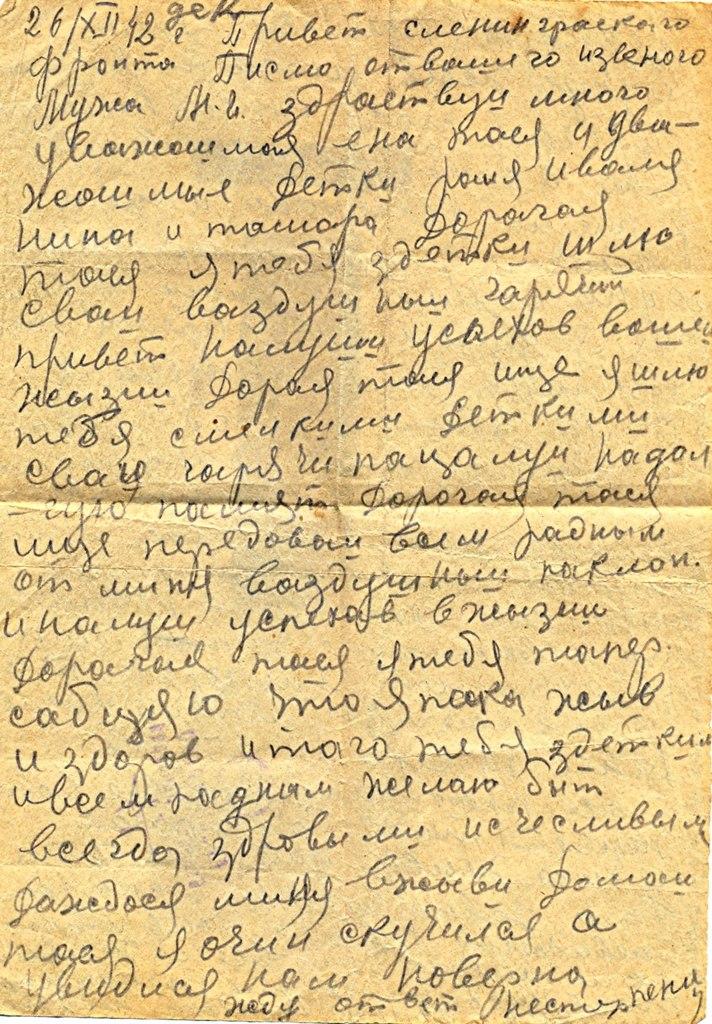 26/XII 42 г дек Привет сленинграскаго
фронта Писмо отвашего извеного
Мужа М.И. здраствуй много
уважаимая ена тася и Ува-
жаимые детки рая иваля
нина и тамара Дорагая
тася я тебя здетки шлю
свай воздушный гарячий
привет налучи успехов вашей
жызни Дорая тася ище я шлю
тебя смеикими детками
сваю гарячи пацалуи надал
-гую памят Дорагая тася
ище передовай всем радным
от миня воздушный паклон.
и налучи успехов вжызни
Дорагая тася я тебя тапер.
сабщяю что я пака жыв
и здоров итаго тебя здетками
ивсем радным желаю быт
всегда здровыми исчесливыми
Даждося миня вжыви Домой
тася я очин скучился а
увидися нам поверна
жду ответ Нестер